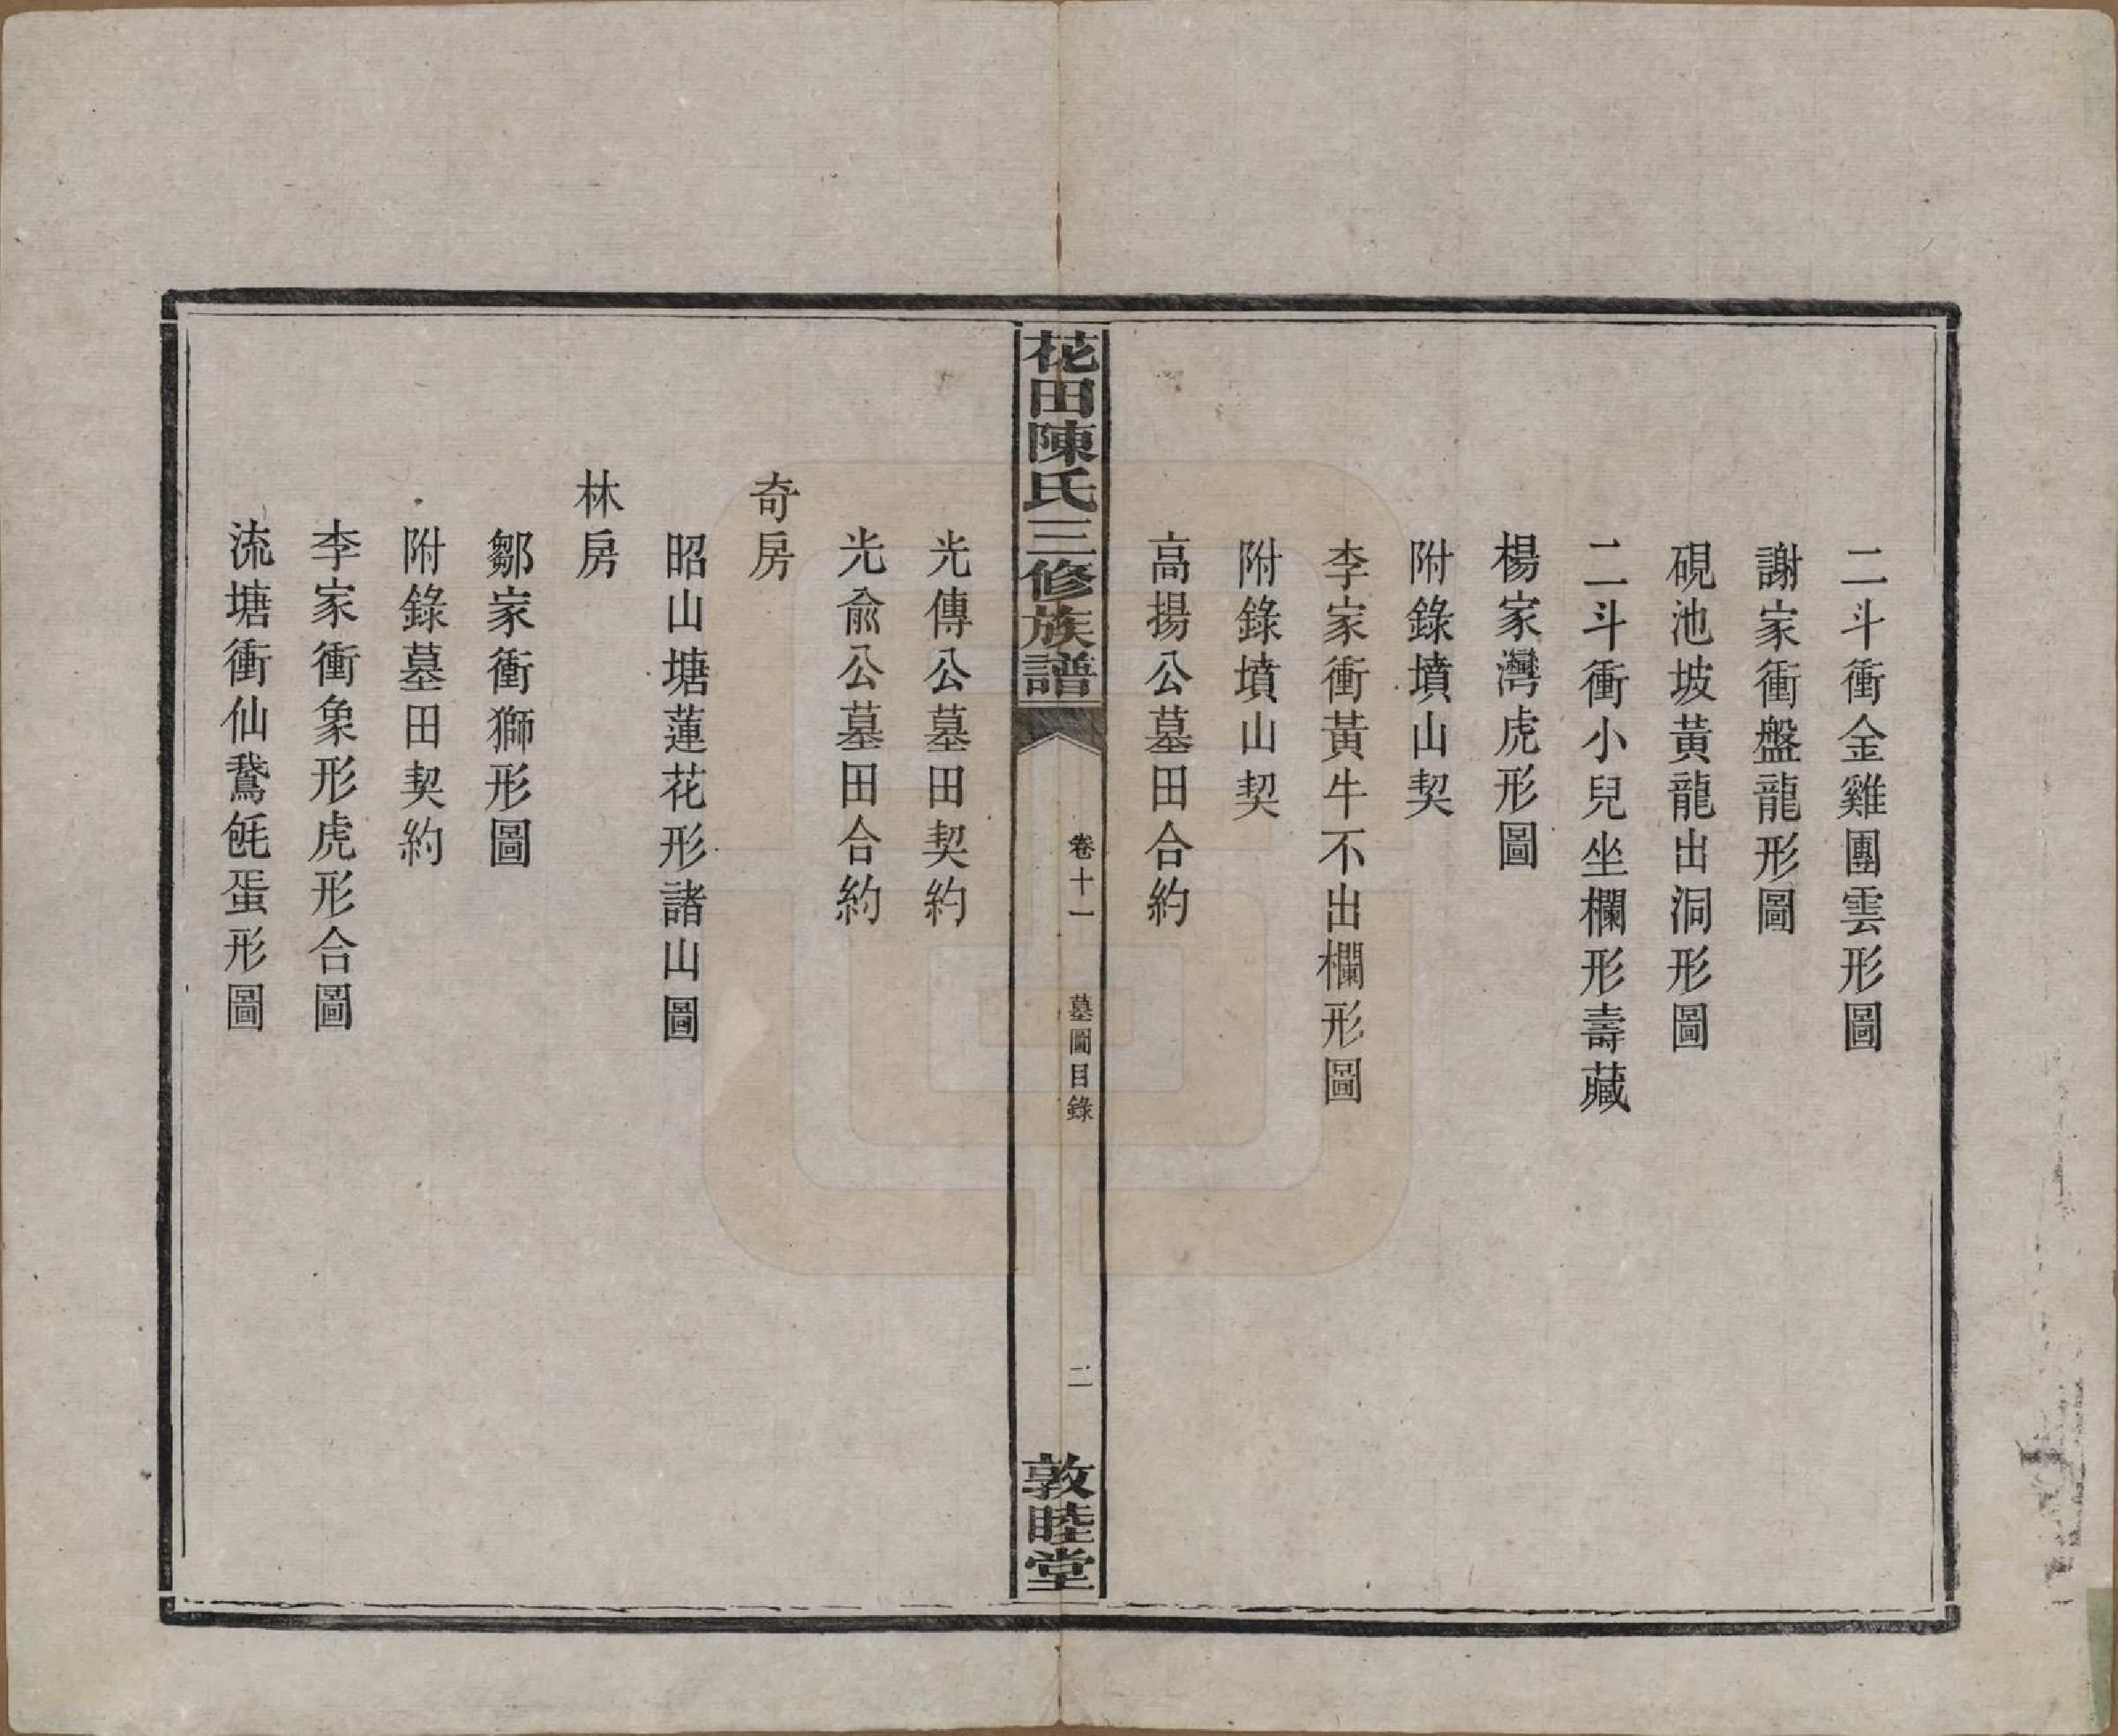 二斗衝金雞團雲形圖
謝家衝盤龍形圖
硯池坡黃龍出洞形圖
二斗衝小兒坐欄形壽藏
楊家灣虎形圖
附錄墳山契
李家衝黃牛不出欄形圖
附錄墳山契
高揚公墓田合約
花田陳氏三修族譜
卷十一
墓圖目錄
二
敦睦堂
光傳公墓田契約
光俞公墓田合約
奇房
昭山塘蓮花形諸山圖
林房
鄒家衝獅形圖
附錄墓田契約
李家衝象形虎形合圖
流塘衝仙鵞毨蛋形圖